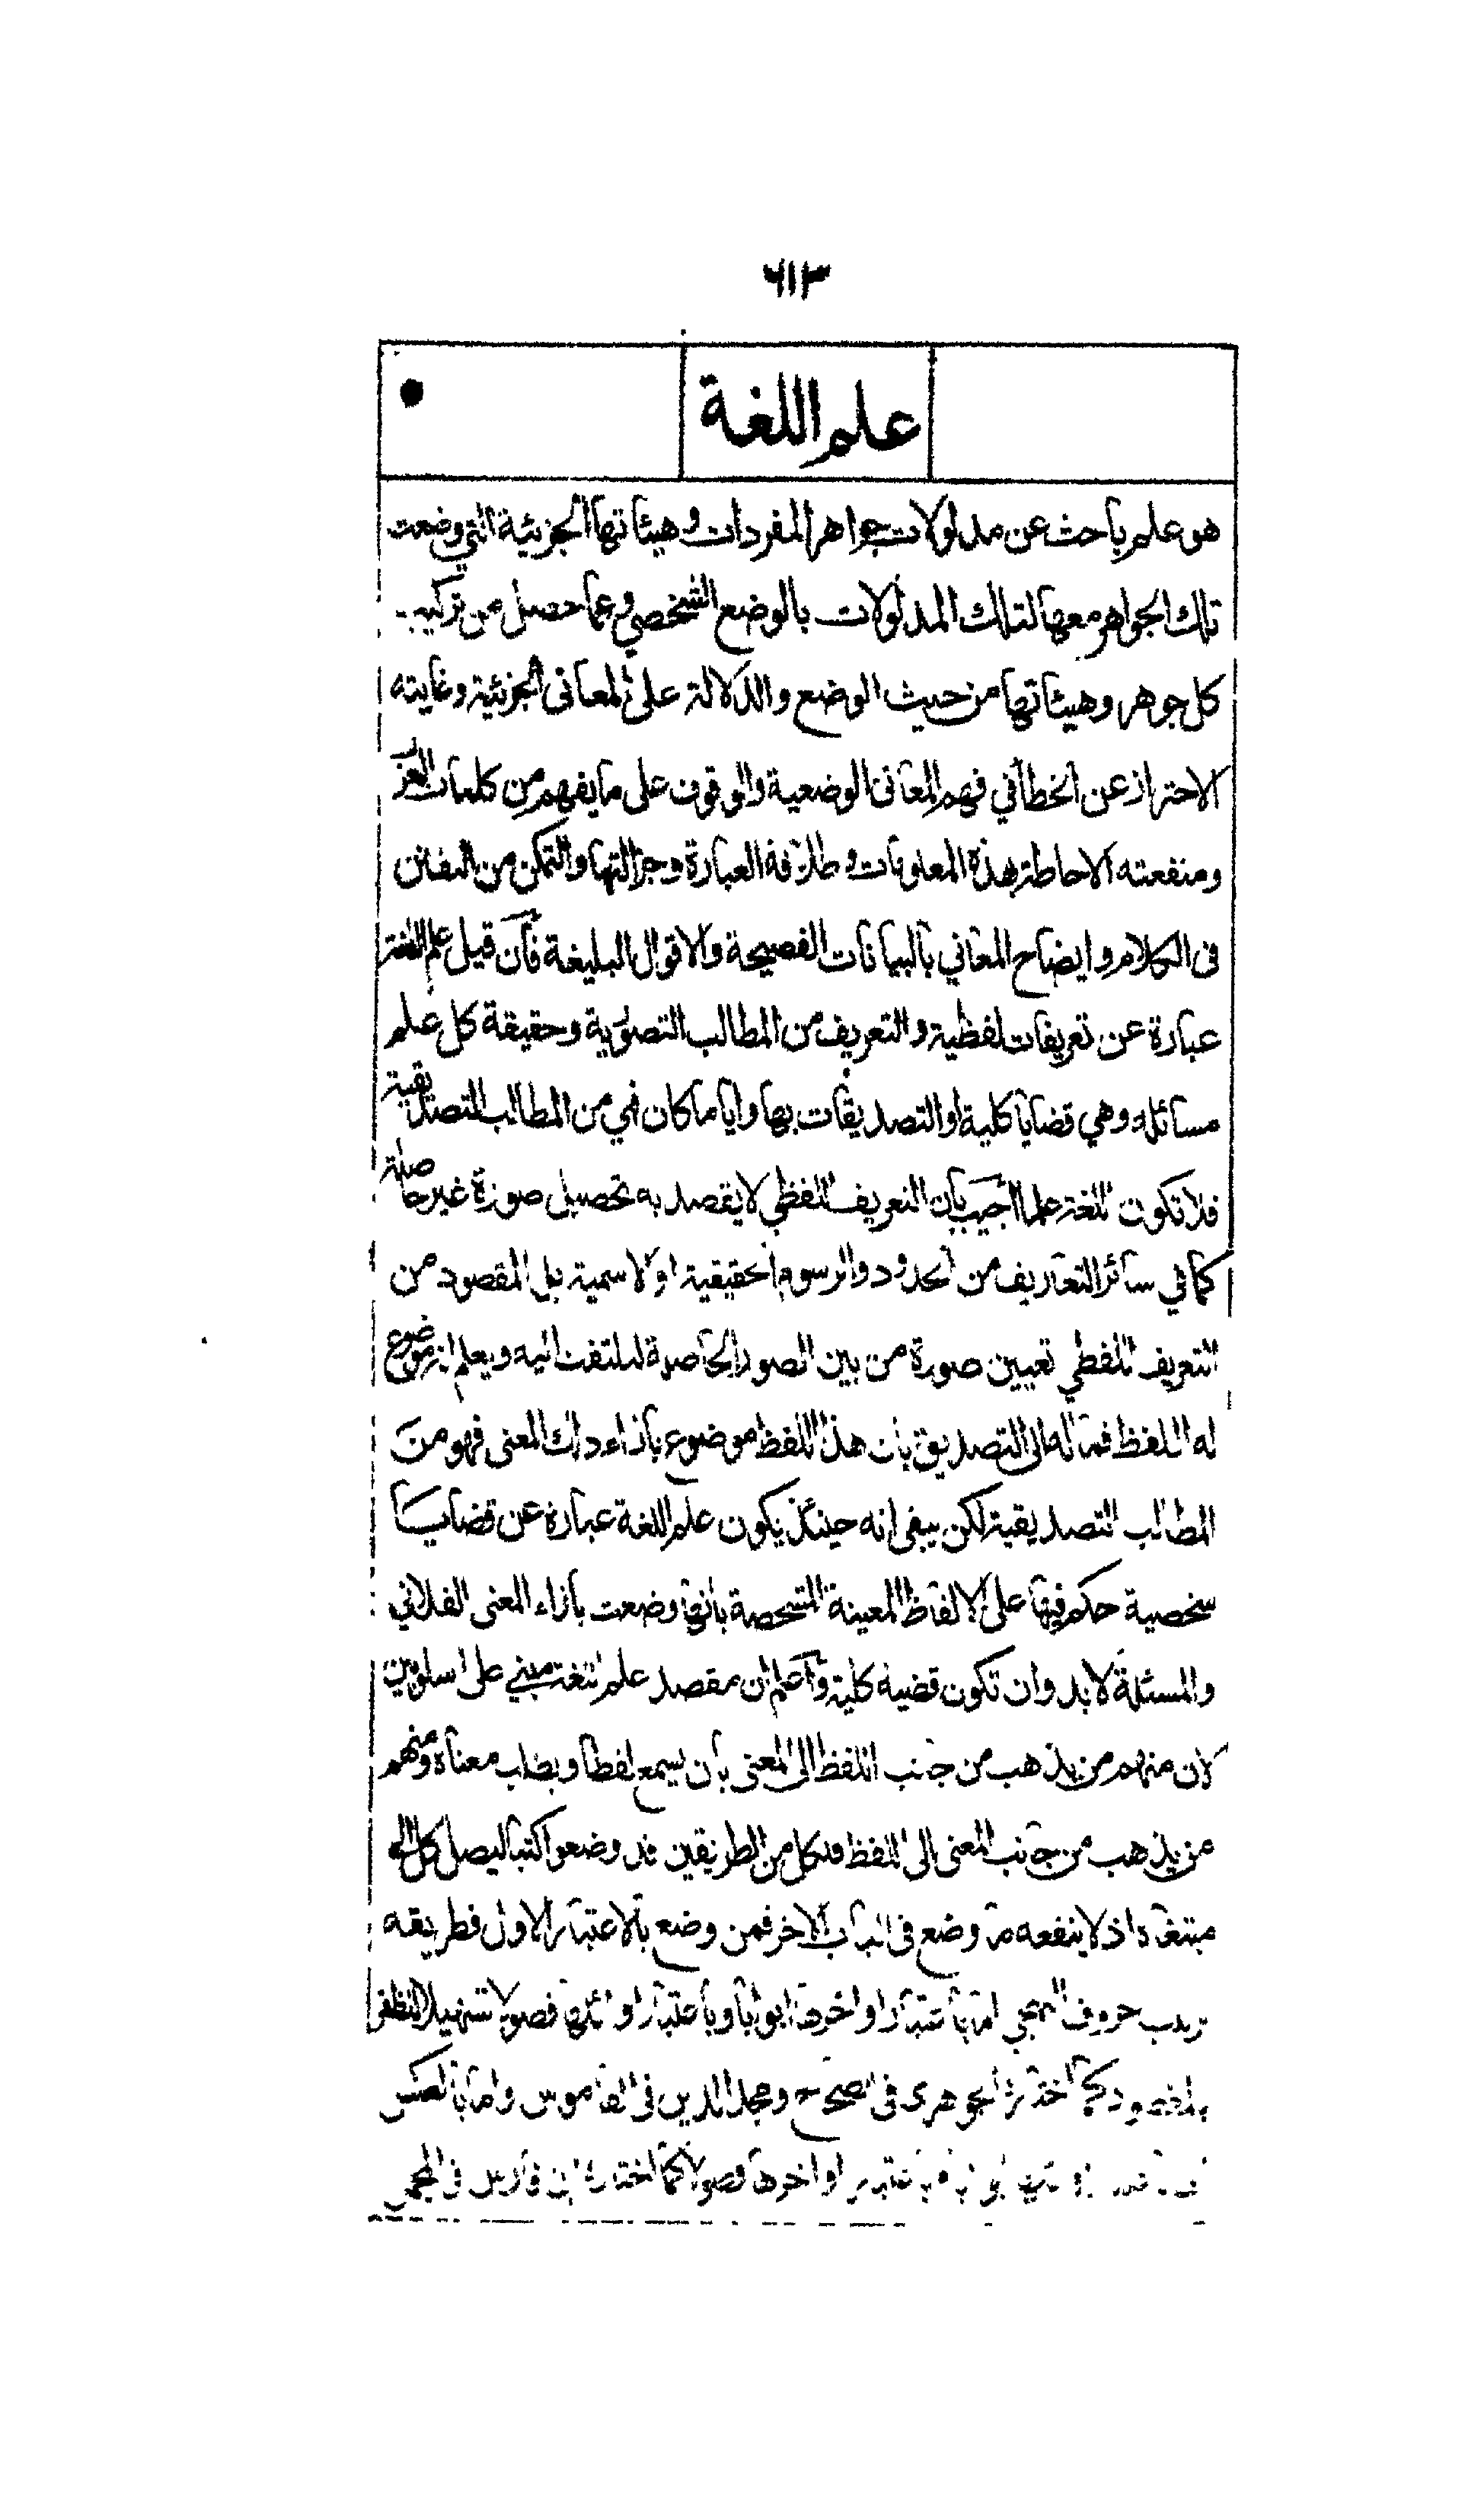 ٦١٣
علم اللغة
هو علم باحث عن مدلولات جواهر المفردات وهيئاتها الجزئية التي وضعت
تلك الجواهر معها لتلك المدلولات بالوضع الشخصي وعما حصل من تركيب
كل جوهر وهيئاتها من حيث الوضع والدلالة على المعانى الجزئية وغايته
الاحتراز عن الخطأ في فهم المعانى الوضعية والوقوف على ما يفهم من كلمات العرب
ومنفعته الاحاطة بهذه المعلومات وطلاقة العبارة وجزالتها والتمكن من التفنن
فى الكلام وايضاح المعاني بالبيانات الفصيحة والاقوال البليغة فان قيل علم اللغة
عبارة عن تعريفات لفظية والتعريف من المطالب التصورية وحقيقة كل علم
مسائله وهي قضايا كلية او التصديقات بها وايا ما كان فهي من المطالب التصديقية
فلا تكون اللغة علما اجيب بان التعريف اللفظي لا يقصد به تحصيل صورة غير حاصلة
كما في سائر التعاريف من الحدود والرسوم الحقيقية او الاسمية بل المقصود من
التعريف اللفظي تعيين صورة من بين الصور الحاصلة ليلتفت اليه ويعلم انه موضوع
له اللفظ فمآله الى التصديق بان هذا اللفظ موضوع بازاء ذلك المعنى فهو من
المطالب التصديقية لكن يبقى انه حينئذ يكون علم اللغة عبارة عن قضايا
شخصية حكم فيها على الالفاظ المعينة المتشخصة بانها وضعت بازاء المعنى الفلاني
والمسئلة لا بد وان تكون قضية كلية واعلم ان مقصد علم اللغة مبني على اسلوبين
لان منهم من يذهب من جانب اللفظ الى المعنى بان يسمع لفظا ويطلب معناه ومنهم
من يذهب من جانب المعنى الى اللفظ فلكل من الطريقين قد وضعوا كتبا ليصل كل الى
مبتغاه اذ لا ينفعه ما وضع فى الباب الاخر فمن وضع بالاعتبار الاول فطريقه
ترتيب حروف التهجي اما باعتبار اواخرها ابوابا وباعتبار اوائلها فصولا تسهيلا للظفر
بالمقصود كما اختاره الجوهرى فى الصحاح ومجد الدين فى القاموس واما بالعكس
اى باعتبار اوائلها ابوابا وباعتبار اواخرها فصولا كما اختاره ابن فارس فى المجمل